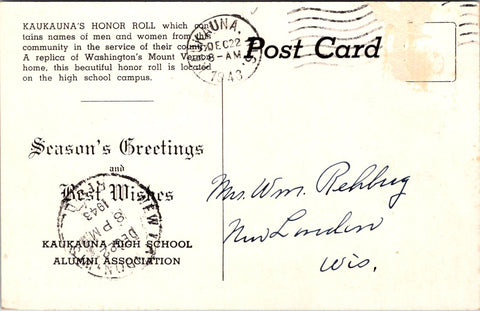 KAUKAUNA'S HONOR ROLL which con-
tains names of men and women from this
community in the service of their country.
A replica of Washington's Mount Vernon
home, this beautiful honor roll is located
on the high school campus.
KAUKAUNA,
DEC 22
8-AM
1943
Post Card
Season's Greetings
and
Best Wishes
KAUKAUNA HIGH SCHOOL
ALUMNI ASSOCIATION
NEW LONDON, WIS.
DEC 22
8 PM
1943
Mrs. Wm. Rehbug
New London
Wis.